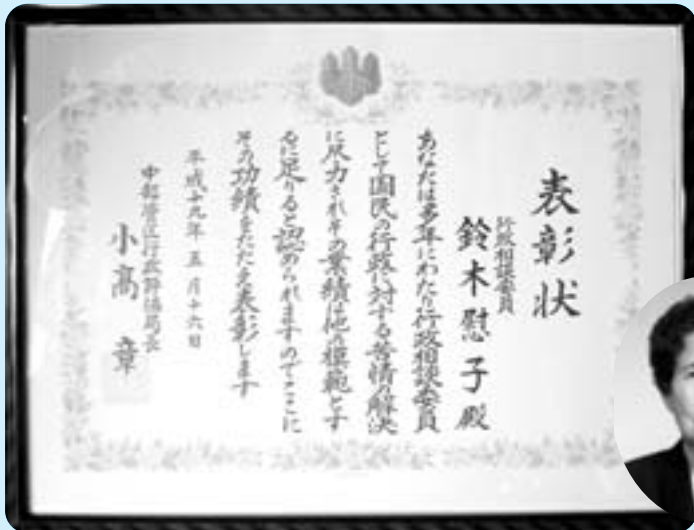 表彰状
行政相談委員
鈴木慰子殿
あなたは多年にわたり行政相談委員
として国民の行政に対する苦情の解決
に尽力されその業績は他の模範とす
るに足りると認められますのでここに
その功績をたたえ表彰します
平成十九年五月十六日
中部管区行政評価局長
小高章